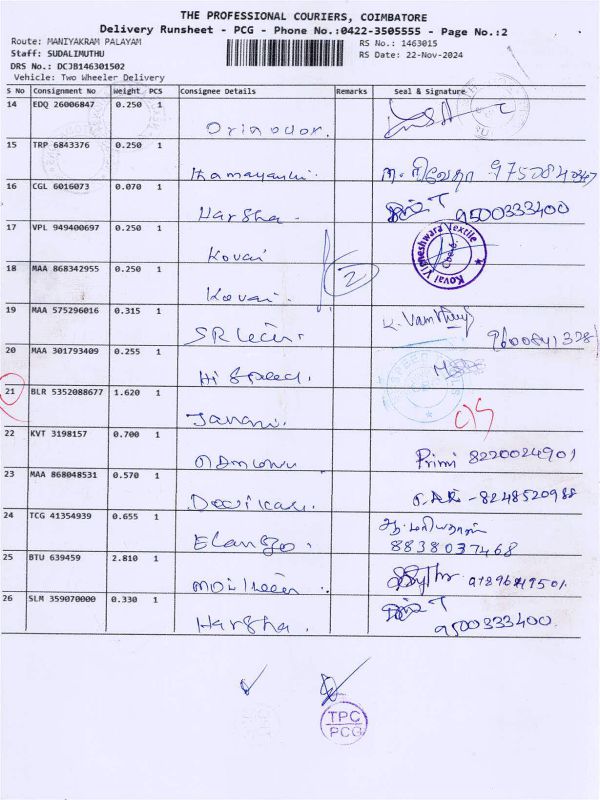 THE PROFESSIONAL COURIERS, COIMBATORE
Delivery Runsheet - PCG - Phone No.:0422-3505555 - Page No.:2
Route: MANIYAKRAM PALAYAM
RS No.: 1463015
Staff: SUDALIMUTHU
RS Date: 22-Nov-2024
DRS No.: DCJB146301502
Vehicle: Two Wheeler Delivery
S No Consignment No Weight PCS Consignee Details Remarks Seal & Signature
14 EDQ 26006847 0.250 1
15 TRP 6843376 0.250 1
16 CGL 6016073 0.070 1 Harsha. 9500333400
17 VPL 949400697 0.250 1 Kovai
Kovai Vigneshwara Textile
Cbe-6.
18 MAA 868342955 0.250 1 Kovai. 2
19 MAA 575296016 0.315 1
20 MAA 301793409 0.255 1 Hi Speed.
21 BLR 5352088677 1.620 1 Janani.
22 KVT 3198157 0.700 1 Primi 8220024901
23 MAA 868048531 0.570 1 - 8248520988
24 TCG 41354939 0.655 1 Elango.
8838037468
25 BTU 639459 2.810 1
26 SLM 359070000 0.330 1 Harsha. 9500333400.
TPC
PCG